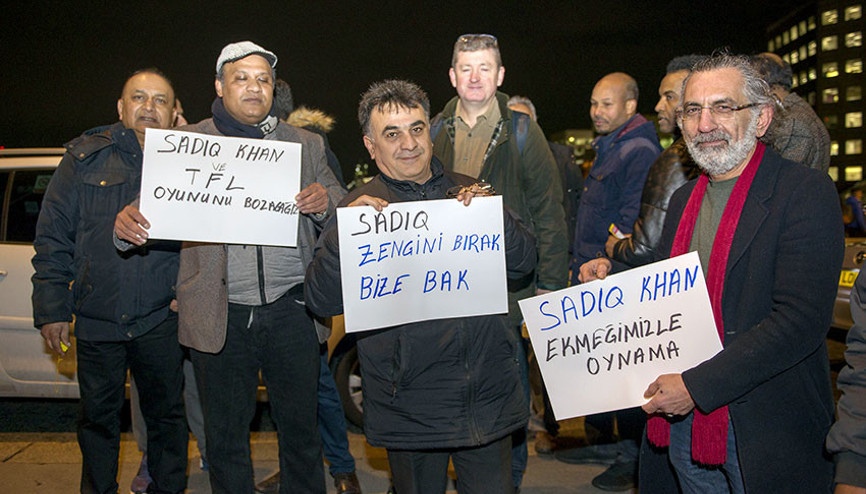 SADIQ KHAN
VE
TFL
OYUNUNU BOZACAĞIZ
SADIQ
ZENGİNİ BIRAK
BİZE BAK
SADIQ KHAN
EKMEĞİMİZLE
OYNAMA